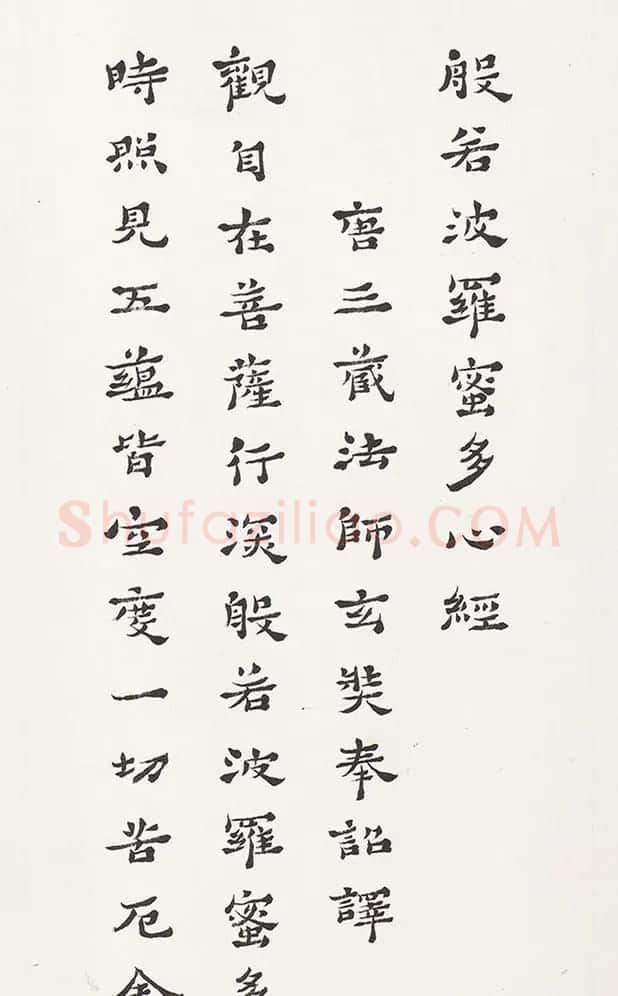 般若波羅蜜多心經
唐三藏法師玄奘奉詔譯
觀自在菩薩行深般若波羅蜜多
時照見五蘊皆空度一切苦厄舍
Shufaziliao.COM